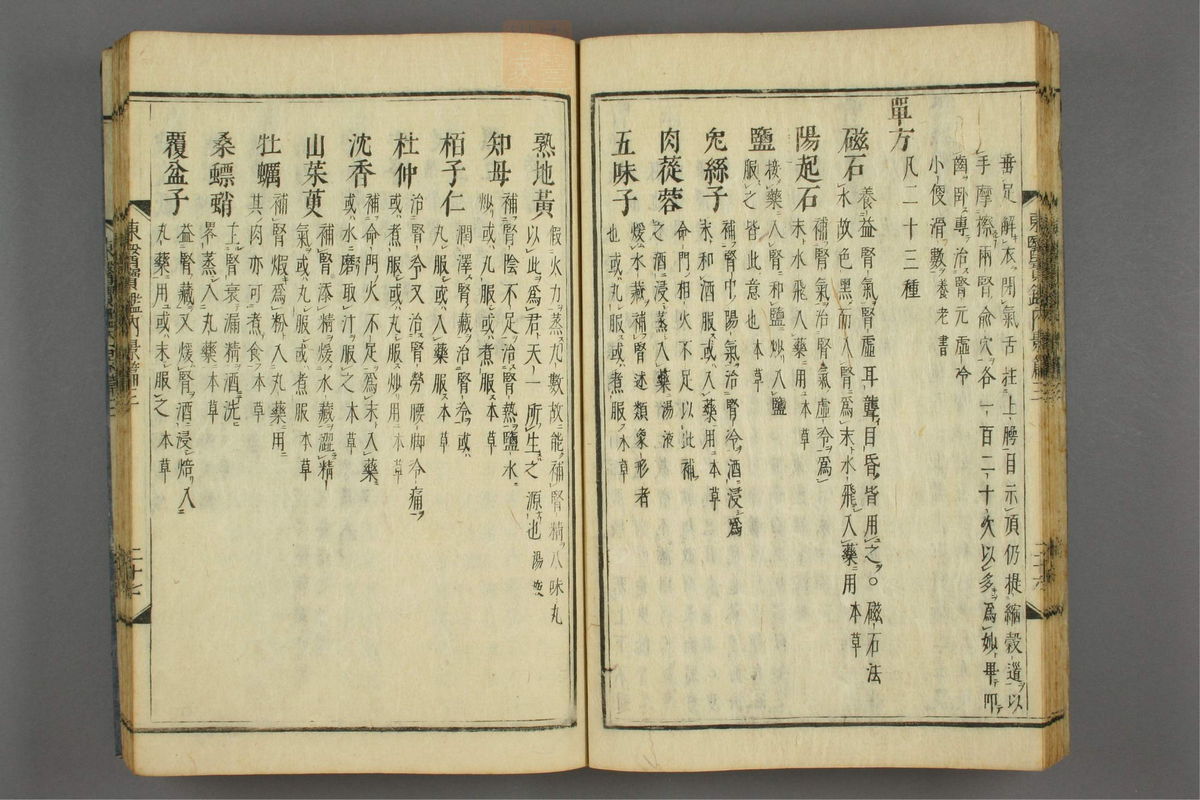 垂足解衣閉氣舌拄上腭目示頂仍提縮穀道以
手摩擦兩腎俞穴各一百二十次以多爲妙畢卽
臥專治腎元虛冷
小便滑數養老書
單方
凡二十三種
磁石
養益腎氣腎虛耳聾目昏皆用之○磁石法
水故色黑而入腎爲末水飛入藥用本草
陽起石
補腎氣治腎氣虛冷爲
末水飛入藥用本草
鹽
接藥入腎和鹽炒入鹽
服之皆此意也本草
兔絲子
補腎中陽氣治腎冷酒浸爲
末和酒服或入藥用本草
肉蓯蓉
命門相火不足以此補
之酒浸蒸入藥湯液
五味子
煖水藏補腎述類象形者
也或丸服或煮服本草
熟地黃
假火力蒸九數故能補腎精八味丸
以此爲君天一所生之源也湯液
知母
補腎陰不足治腎熱鹽水
炒或丸服或煮服本草
栢子仁
潤澤腎藏治腎冷或
丸服或入藥服本草
杜仲
治腎冷又治腎勞腰脚冷痛
或煮服或丸服炒用本草
沈香
補命門火不足爲末入藥
或水磨取汁服之本草
山茱萸
補腎添精煖水藏澀精
氣或丸服或煮服本草
牡蠣
補腎煆爲粉入丸藥用
其肉亦可煮食本草
桑螵蛸
主腎衰漏精酒洗
畧蒸入丸藥本草
覆盆子
益腎藏又煖腎酒浸焙入
丸藥用或末服之本草
東醫寶鑑內景篇三
二十七